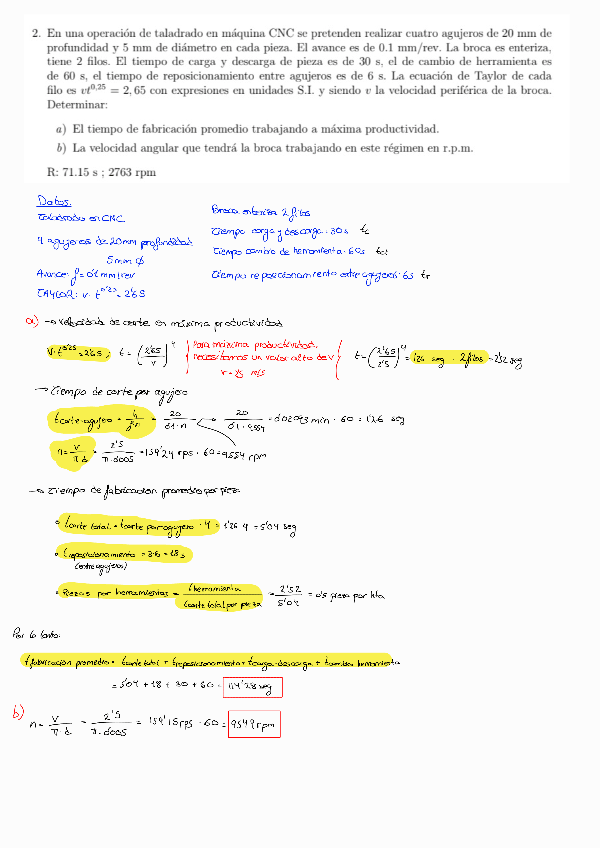 2. En una operación de taladrado en máquina CNC se pretenden realizar cuatro agujeros de 20 mm de
profundidad y 5 mm de diámetro en cada pieza. El avance es de 0.1 mm/rev. La broca es enteriza,
tiene 2 filos. El tiempo de carga y descarga de pieza es de 30 s, el de cambio de herramienta es
de 60 s, el tiempo de reposicionamiento entre agujeros es de 6 s. La ecuación de Taylor de cada
filo es vt^0,25 = 2,65 con expresiones en unidades S.I. y siendo v la velocidad periférica de la broca.
Determinar:
a) El tiempo de fabricación promedio trabajando a máxima productividad.
b) La velocidad angular que tendrá la broca trabajando en este régimen en r.p.m.
R: 71.15 s ; 2763 rpm
Datos:
Taladrado en CNC
4 agujeros de 20mm profundidad
5mm Ø
Avance: f= 0'1 mm/rev
TAYLOR: v · t^0'25 = 2'65
Broca enteriza 2 filos
Tiempo carga y descarga: 30s tc
Tiempo cambio de herramienta: 60s
Tiempo reposicionamiento entre agujeros: 6s tr
a) → Velocidad de corte en máxima productividad
v·t^0'25 = 2'65 ; t = (2'65/v)^4
Para máxima productividad.
necesitamos un valor alto de v
t = (2'65/2'5)^4 = 1'26 seg · 2 filos = 2'52 seg
→ Tiempo de corte por agujero
t corte agujero = = 20/0'1·n → 20/0'1·9554 = 0'02093 min · 60 = 1'26 seg
n = v/π·d = 2'5/π·0'005 = 159'24 rps · 60 = 9554 rpm
→ Tiempo de fabricación promedio por pieza
• t corte total = t corte por agujero · 4 = 1'26 · 4 = 5'04 seg
• t reposicionamiento = 3·6 = 18 s
(entre agujeros)
• Piezas por herramientas = t herramienta / t corte total por pieza = 2'52/5'04 = 0'5 pieza por hta
Por lo tanto:
t fabricación promedio = t corte total + t reposicionamiento + t carga-descarga + t cambio herramienta
= 5'04 + 18 + 30 + 60 =
b) n = v/π·d = 2'5/π·0'005 = 159'15 rps · 60 = 9549 rpm